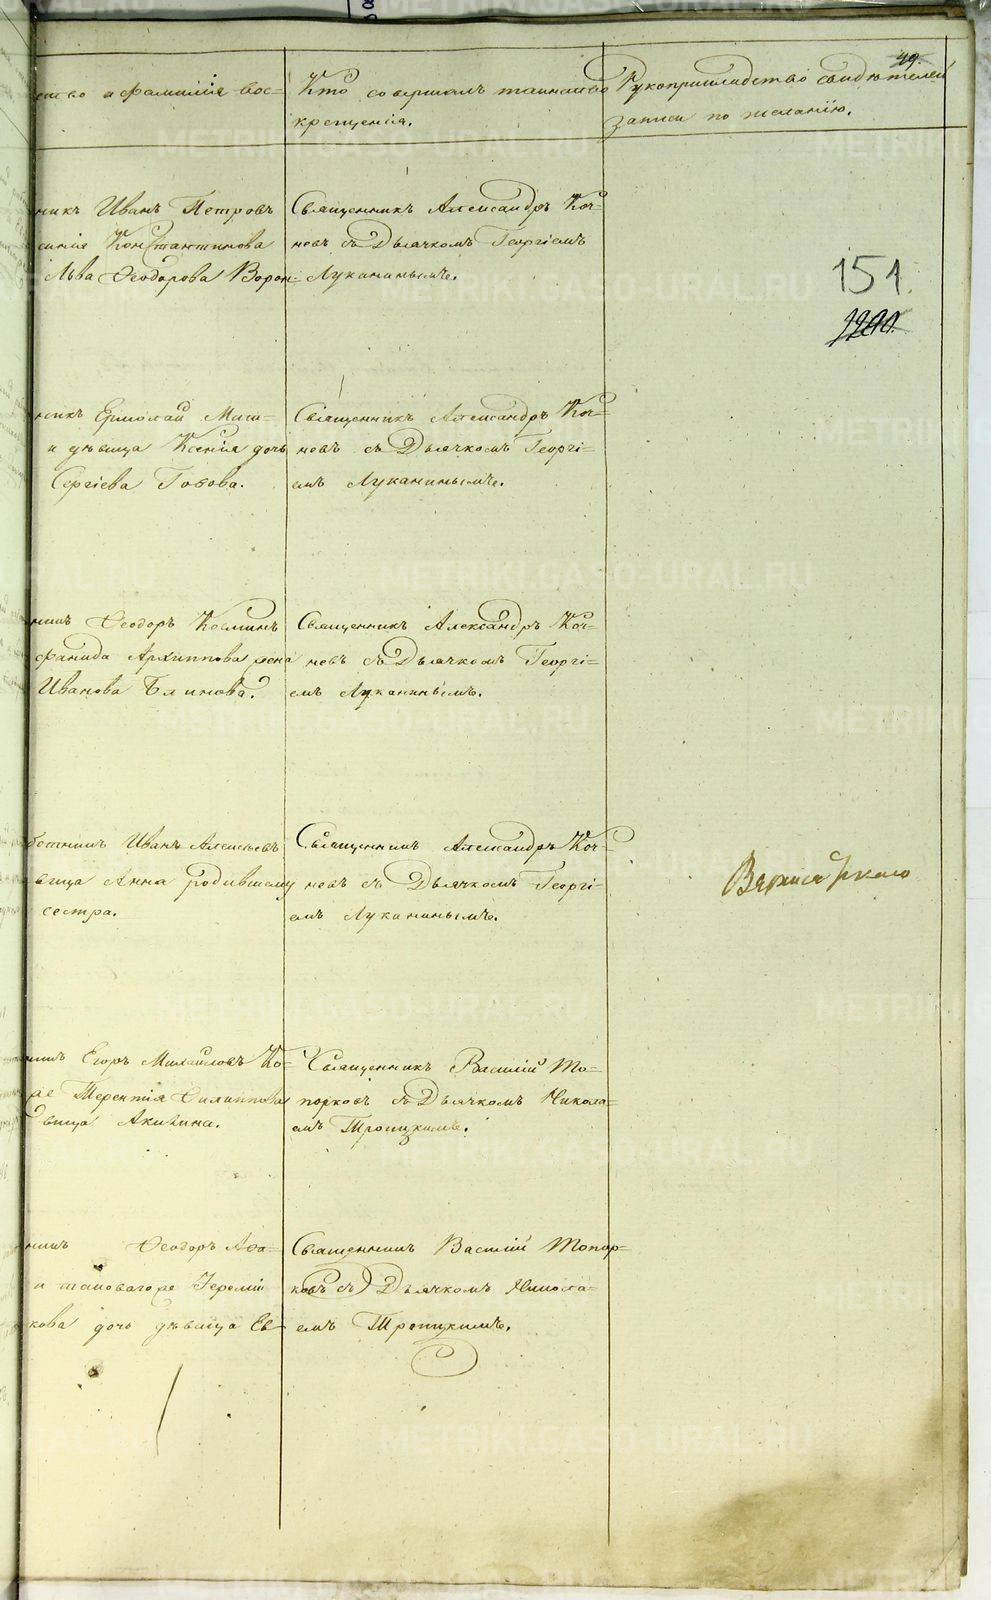 49.
ство и фамилія вос-
Кто совершалъ таинство
крещенія.
Рукоприкладство свидѣтелей
записи по желанію.
151.
никъ Иванъ Петровъ
Константинова
Льва Ѳеодорова Ворон-
Священникъ Александръ Коч-
невъ съ Дьячкомъ Георгіемъ
Луканинымъ.
никъ Ермолай Миш-
и дѣвица Ксенія дочь
Сергіева Гобова.
Священникъ Александръ Коч-
невъ съ Дьячкомъ Георгі-
емъ Луканинымъ.
никъ Ѳеодоръ Косминъ
фанида Архиппова жена
Иванова Блинова.
Священникъ Александръ Коч-
невъ съ Дьячкомъ Георгі-
емъ Луканинымъ.
ботникъ Иванъ Алексѣевъ
вица Анна родившему
сестра.
Священникъ Александръ Коч-
невъ съ Дьячкомъ Георгі-
емъ Луканинымъ.
никъ Егоръ Михайловъ Ко-
ре Терентія Филиппова
вица Акилина.
Священникъ Василій То-
порковъ съ Дьячкомъ Никола-
емъ Троицкимъ.
никъ Ѳеодоръ Аѳа-
и таковагоже Іереміи
кова дочь дѣвица Ев-
Священникъ Василій Топор-
ковъ съ Дьячкомъ Никола-
емъ Троицкимъ.
METRIKI.GASO-URAL.RU